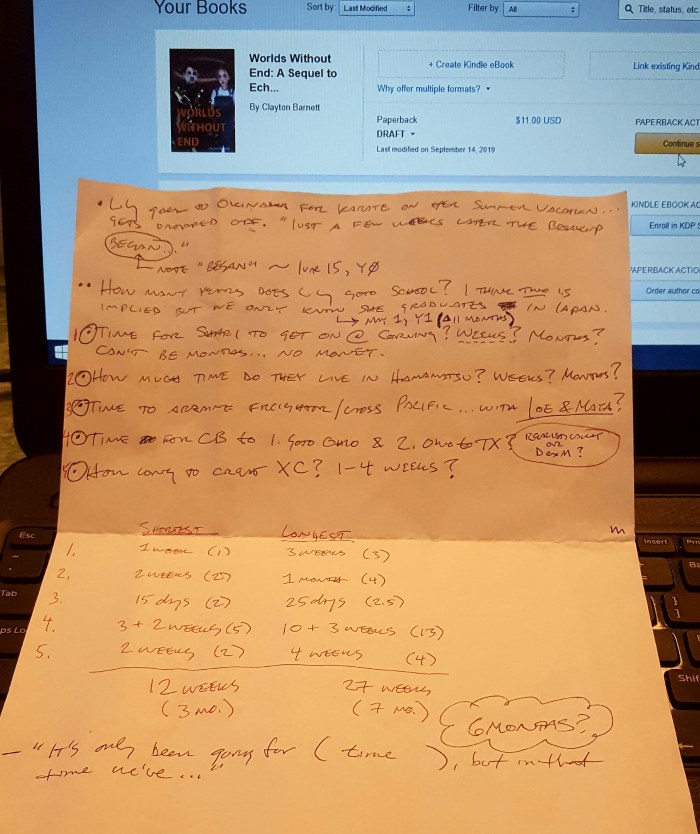 Your Books
Sort by Last Modified
Filter by All
Title, status, etc
Worlds Without
End: A Sequel to
Ech...
By Clayton Barnett
WORLDS
WITHOUT
END
+ Create Kindle eBook
Link existing Kind
Why offer multiple formats?
Paperback
DRAFT
$11.00 USD
Last modified on September 14, 2019
PAPERBACK ACT
Continue s
KINDLE EBOOK AC
Enroll in KDP S
PAPERBACK ACTIO
Order author co
• Lily goes to Okinawa for karate on her summer vacation...
gets dropped off. "Just a few weeks later the Breakup
began..."
Note "began" ~ June 15, YØ
•• How many years does Lily goto school? I think two is
implied but we only know she graduates in Japan.
→ May 1, Y1 (All months)
1 Time for to get on @ Corning? Weeks? Months?
Can't be months... no money.
2 How much time do they live in Hamamatsu? Weeks? Months?
3 Time to arrange freighter/cross Pacific... with Joe & Maya?
4 Time for CB to 1. goto Ohio & 2. Ohio to TX?
or
DexM?
5 How long to XC? 1-4 weeks?
Shortest Longest
1. 1 week (1) 3 weeks (3)
2. 2 weeks (2) 1 month (4)
3. 15 days (2) 25 days (2.5)
4. 3 + 2 weeks (5) 10 + 3 weeks (13)
5. 2 weeks (2) 4 weeks (4)
12 weeks 27 weeks
(3 mo.) (7 mo.)
6 months?
– "It's only been going for (time ), but in that
time we've..."
m
Esc
Tab
ps Lo
Insert
Shif